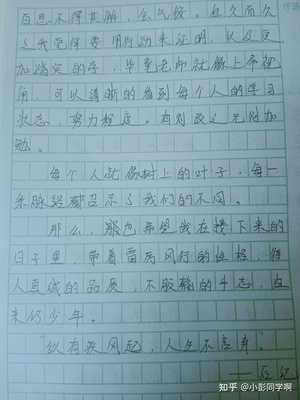 百思不得其解，会气馁。但久而久
之我觉得要用行动来证明，以及更
加踏实的学，毕竟老师就像上帝视
角，可以清晰的看到每个人的学习
状态，努力程度。有则改之无则加
勉。
每个人就像树上的叶子，每一
条脉络都召示了我们的不同。
那么，我也希望我在接下来的
日子里，带着雷厉风行的性格，待
人真诚的品质，不服输的斗志，归
来仍少年。
"纵有疾风起，人生不言弃"
知乎 @小彭同学啊